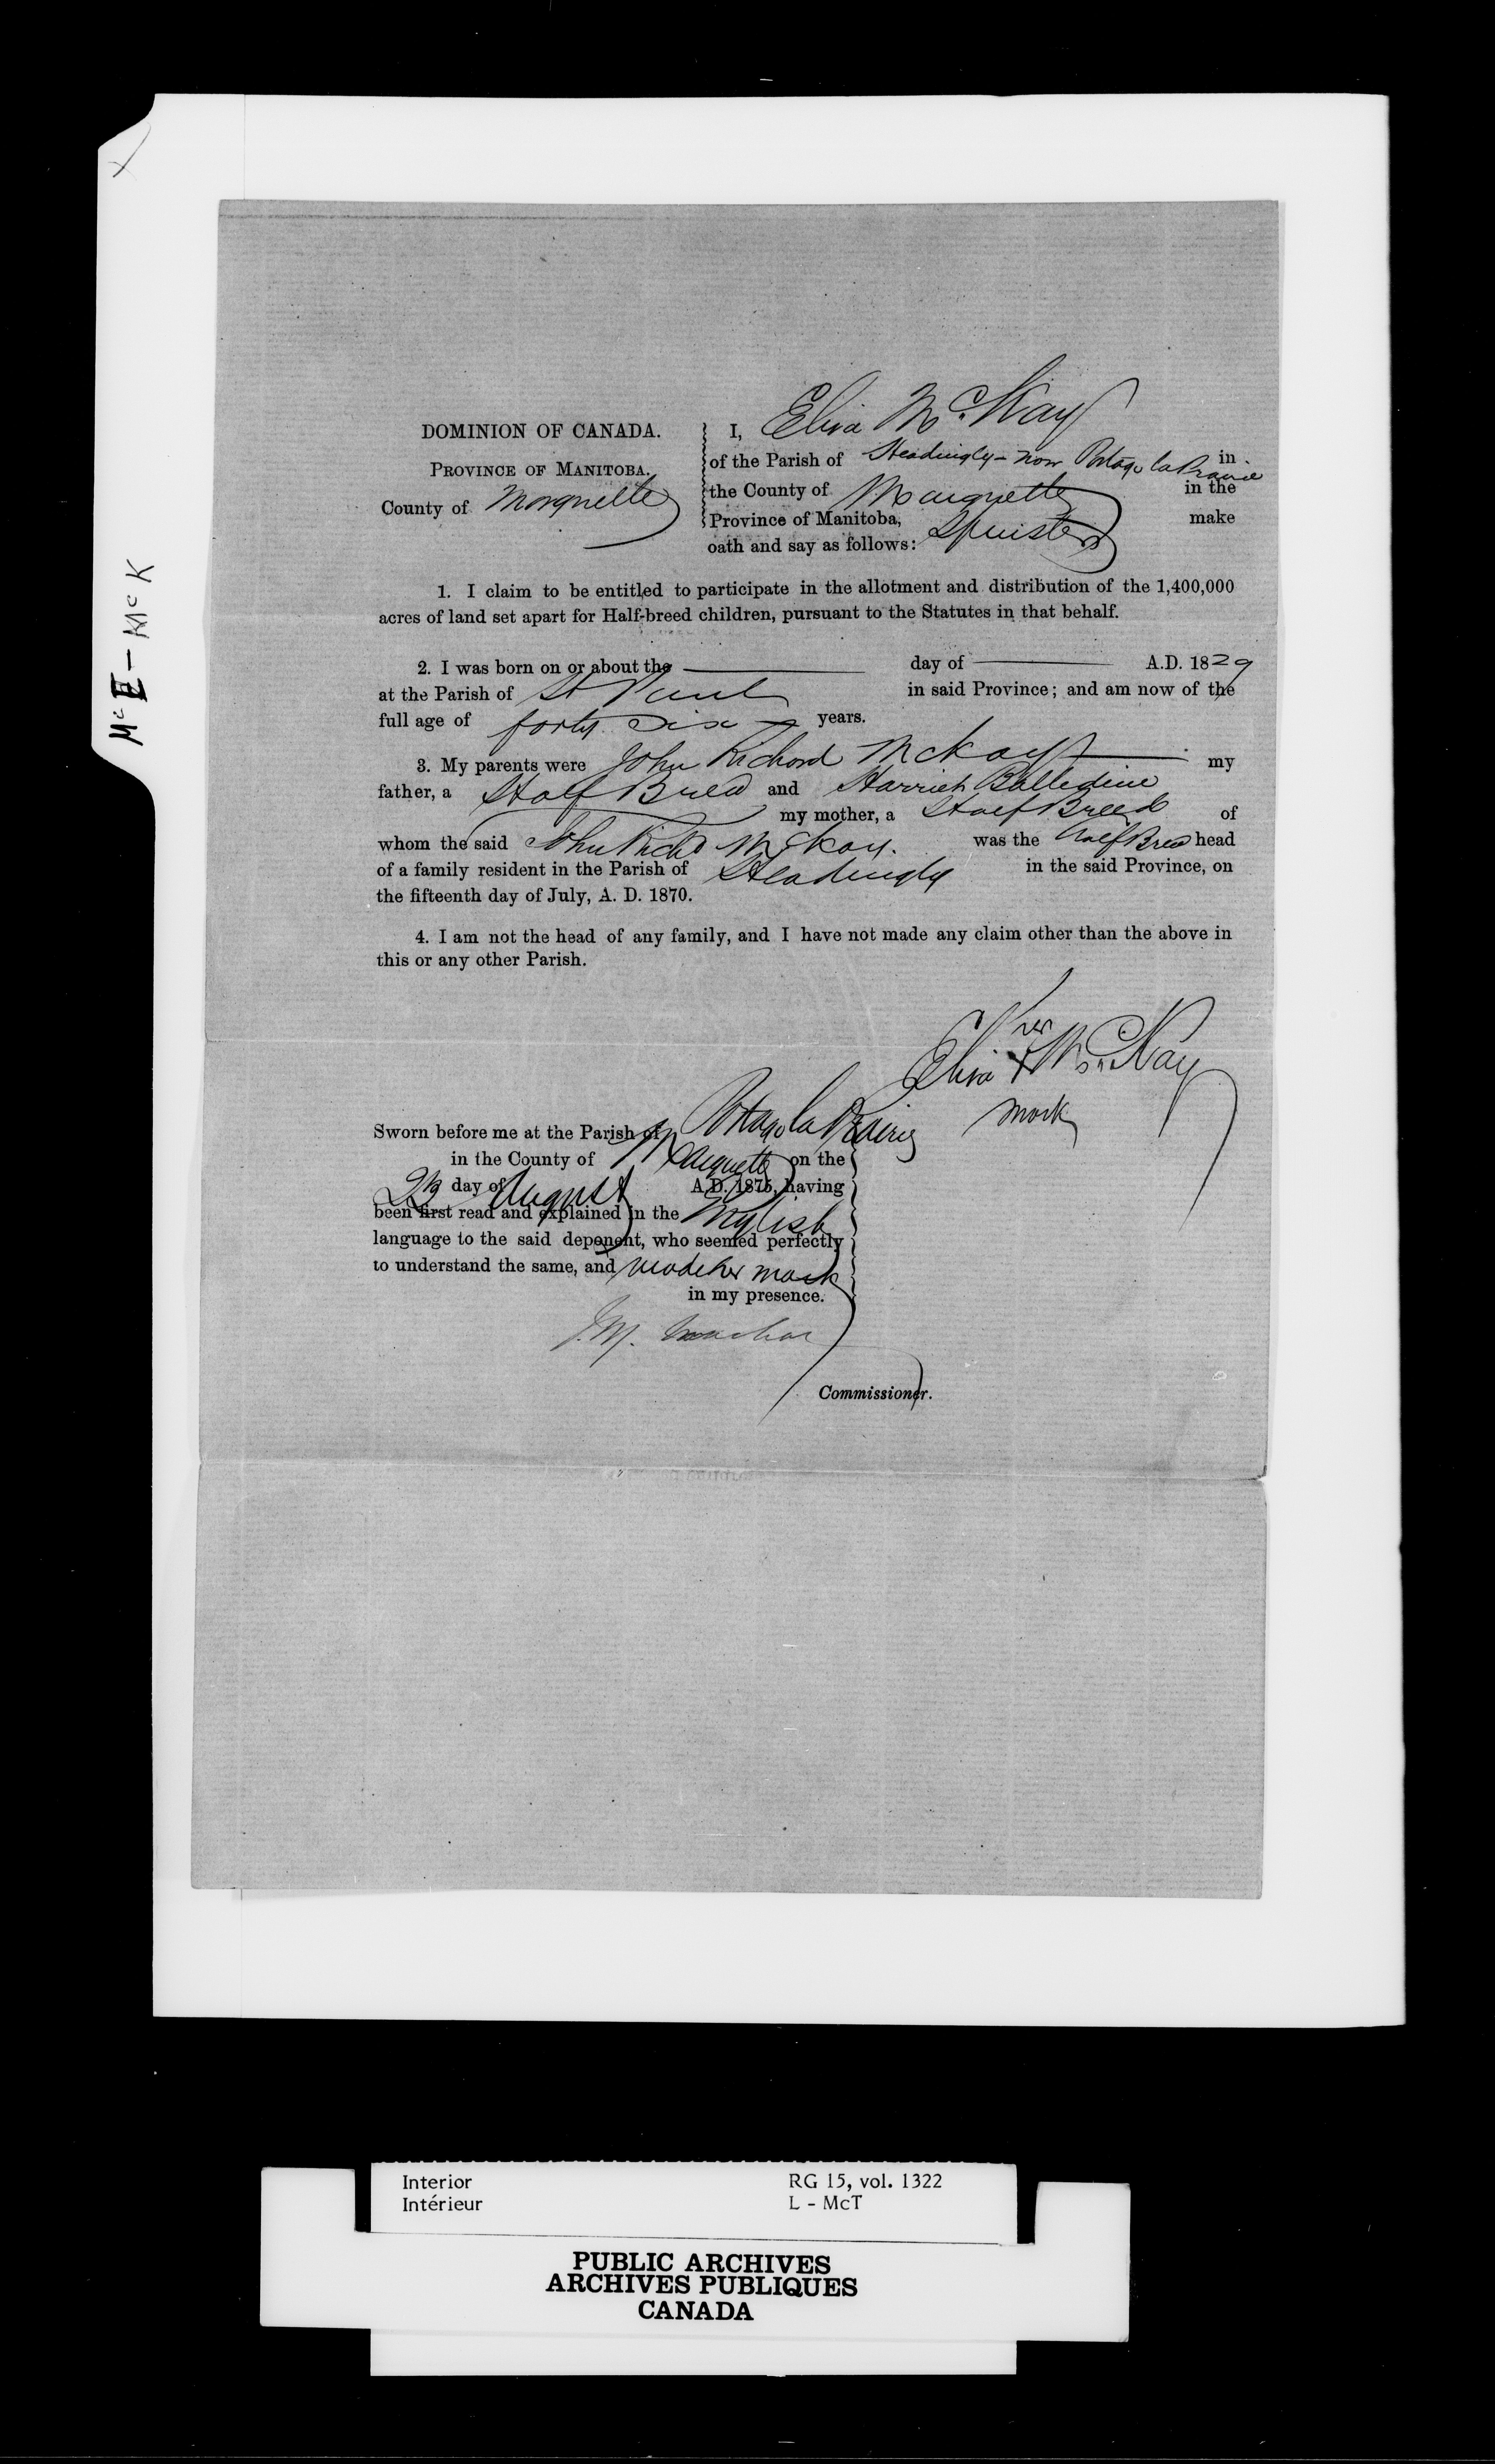 McE - McK
DOMINION OF CANADA.
PROVINCE OF MANITOBA.
County of Marquette
I, Eliza McKay
of the Parish of Headingly - now Portage la Prairie in
the County of Marquette in the
Province of Manitoba, Spinster make
oath and say as follows:
1. I claim to be entitled to participate in the allotment and distribution of the 1,400,000
acres of land set apart for Half-breed children, pursuant to the Statutes in that behalf.
2. I was born on or about the day of A.D. 1829
at the Parish of St Paul in said Province; and am now of the
full age of forty six years.
3. My parents were John Richard McKay my
father, a Half Breed and Harriet Balledine
my mother, a Half Breed of
whom the said John Richd McKay. was the Half Breed head
of a family resident in the Parish of Headingly in the said Province, on
the fifteenth day of July, A. D. 1870.
4. I am not the head of any family, and I have not made any claim other than the above in
this or any other Parish.
her
Eliza X McKay
mark
Sworn before me at the Parish of Portage la Prairie
in the County of Marquette on the
day of August A.D. 1875, having
been first read and explained in the English
language to the said deponent, who seemed perfectly
to understand the same, and made her mark
in my presence.
J.M. Machar
Commissioner.
Interior RG 15, vol. 1322
Intérieur L - McT
PUBLIC ARCHIVES
ARCHIVES PUBLIQUES
CANADA